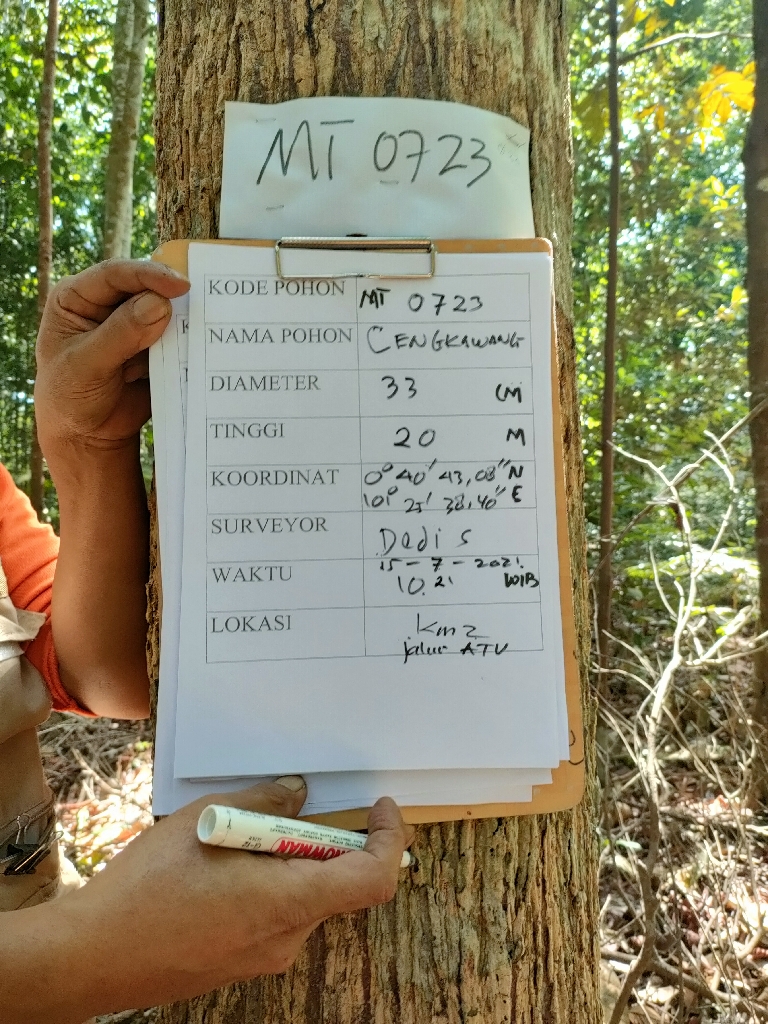 MT 0723
KODE POHON MT 0723
NAMA POHON CENGKAWANG
DIAMETER 33 CM
TINGGI 20 M
KOORDINAT 0° 40' 43,08" N
101° 25' 38,40" E
SURVEYOR Dedi S
WAKTU 15 - 7 - 2021.
10.21 WIB
LOKASI km 2
jalur ATV
SNOWMAN